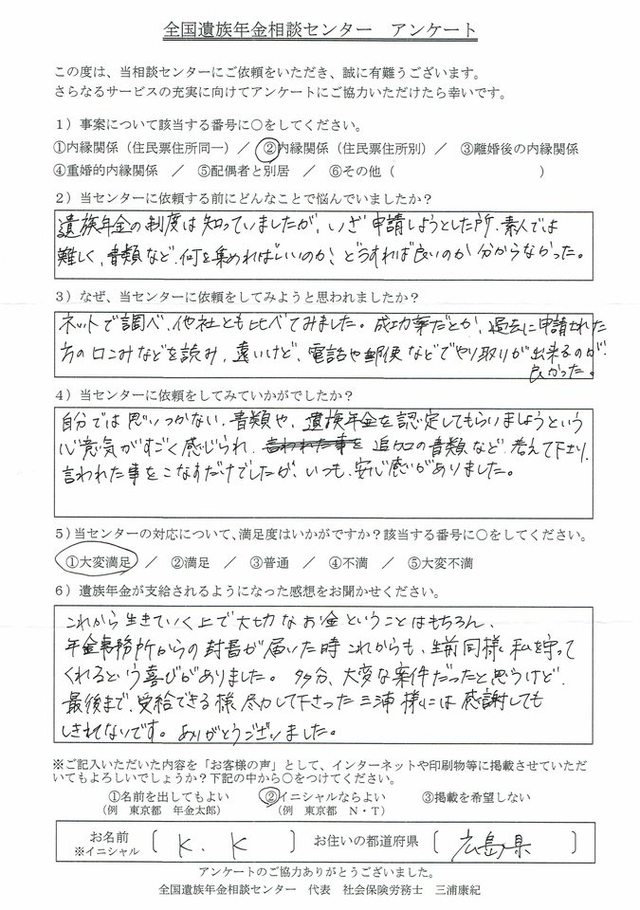 全国遺族年金相談センター　アンケート
この度は、当相談センターにご依頼をいただき、誠に有難うございます。
さらなるサービスの充実に向けてアンケートにご協力いただけたら幸いです。
1）事案について該当する番号に○をしてください。
①内縁関係（住民票住所同一）／　②内縁関係（住民票住所別）／　③離婚後の内縁関係
④重婚的内縁関係　／　⑤配偶者と別居　／　⑥その他（　　　　　　　　）
2）当センターに依頼する前にどんなことで悩んでいましたか？
遺族年金の制度は知っていましたが、いざ申請しようとした所、素人では
難しく、書類など、何を集めればいいのか、どうすれば良いのか分からなかった。
3）なぜ、当センターに依頼をしてみようと思われましたか？
ネットで調べ、他社とも比べてみました。成功率だとか、過去に申請された
方の口こみなどを読み、遠いけど、電話や郵便などでやり取りが出来るのが、
良かった。
4）当センターに依頼をしてみていかがでしたか？
自分では思いつかない、書類や、遺族年金を認定してもらいましょうという
心意気がすごく感じられ、言われた事を 追加の書類など、考えて下さり、
言われた事をこなすだけでしたが、いつも、安心感がありました。
5）当センターの対応について、満足度はいかがですか？該当する番号に○をしてください。
①大変満足　／　②満足　／　③普通　／　④不満　／　⑤大変不満
6）遺族年金が支給されるようになった感想をお聞かせください。
これから生きていく上で大切なお金ということはもちろん、
年金事務所からの封書が届いた時これからも、生前同様、私を守って
くれるという喜びがありました。多分、大変な案件だったと思うけど、
最後まで、受給できる様、尽力して下さった三浦様には感謝しても
しきれないです。ありがとうございました。
※ご記入いただいた内容を「お客様の声」として、インターネットや印刷物等に掲載させていただ
いてもよろしいでしょうか？下記の中から○をつけてください。
①名前を出してもよい　②イニシャルならよい　③掲載を希望しない
（例　東京都　年金太郎）　（例　東京都　N・T）
お名前　［　K．K　］　お住いの都道府県　［　広島県　］
※イニシャル
アンケートのご協力ありがとうございました。
全国遺族年金相談センター　代表　社会保険労務士　三浦康紀